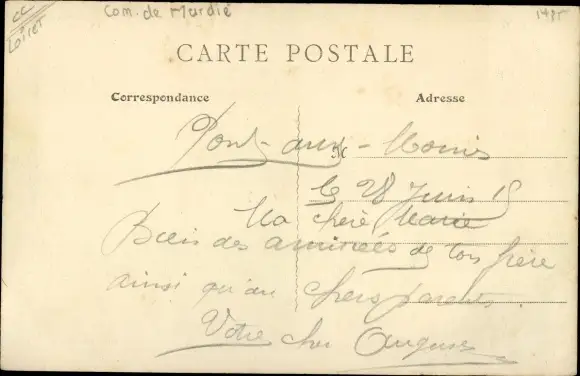 CC
Loiret
Com. de Mardié
CARTE POSTALE
Correspondance
Adresse
Pont-aux-Moines
M
le 28 Juin 15
Ma chère Marie
Bien des amitiés de ton frère
ainsi qu'au chers parents.
Votre cher Auguste